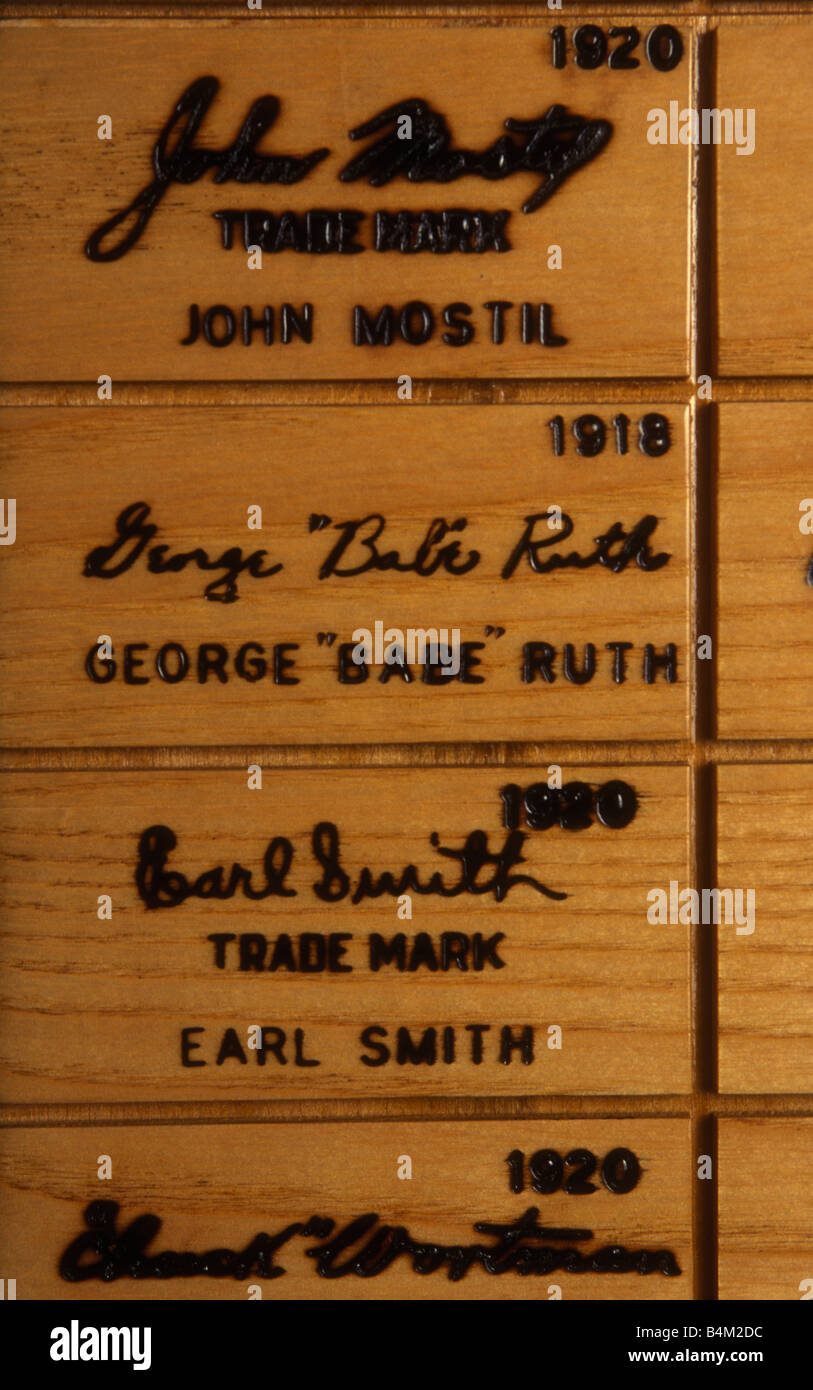 1920
John Mostil
TRADE MARK
JOHN MOSTIL
1918
George "Babe" Ruth
GEORGE "BABE" RUTH
1920
Earl Smith
TRADE MARK
EARL SMITH
1920
"Chuck" Wortman
a
alamy
alamy
Image ID: B4M2DC
www.alamy.com